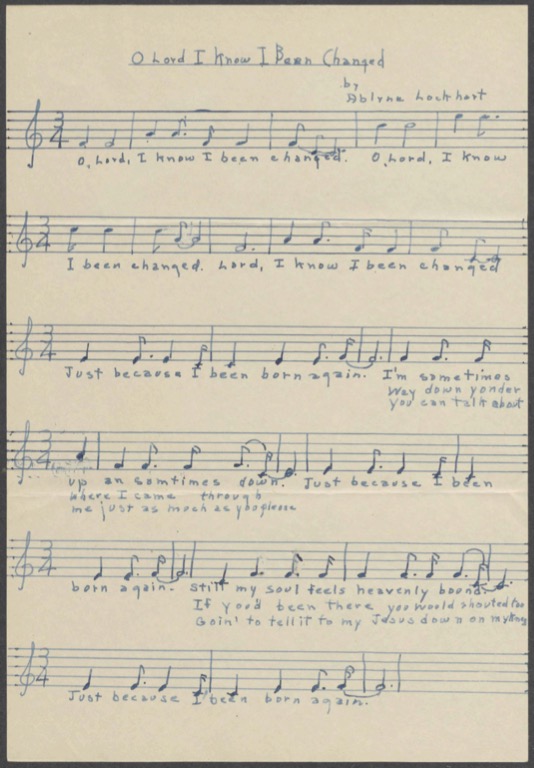 O Lord I Know I Been Changed
by
Ablyne Lockhart
3 4
O, Lord, I know I been changed. O, Lord, I know
3 4
I been changed. Lord, I know I been changed
3 4
Just because I been born again. I'm sometimes
Way down yonder
You can talk about
3 4
up an somtimes down. Just because I been
where I came through
me just as much as you please
3 4
born again. Still my soul feels heavenly bound.
If you'd been there you would shouted too
Goin' to tell it to my Jesus down on my
3 4
Just because I been born again.